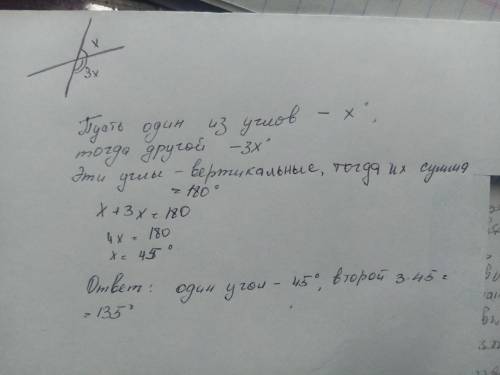 x
3x
Пусть один из углов - x°,
тогда другой -3x°
Эти углы - вертикальные, тогда их сумма
= 180°
x + 3x = 180
4x = 180
x = 45°
Ответ: один угол - 45°, второй 3·45 =
= 135°